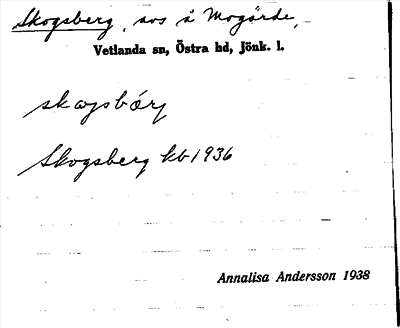 Skogsberg, sos å Mogärde,
Vetlanda sn, Östra hd, Jönk. l.
Skogsberg kb 1936
Annalisa Andersson 1938